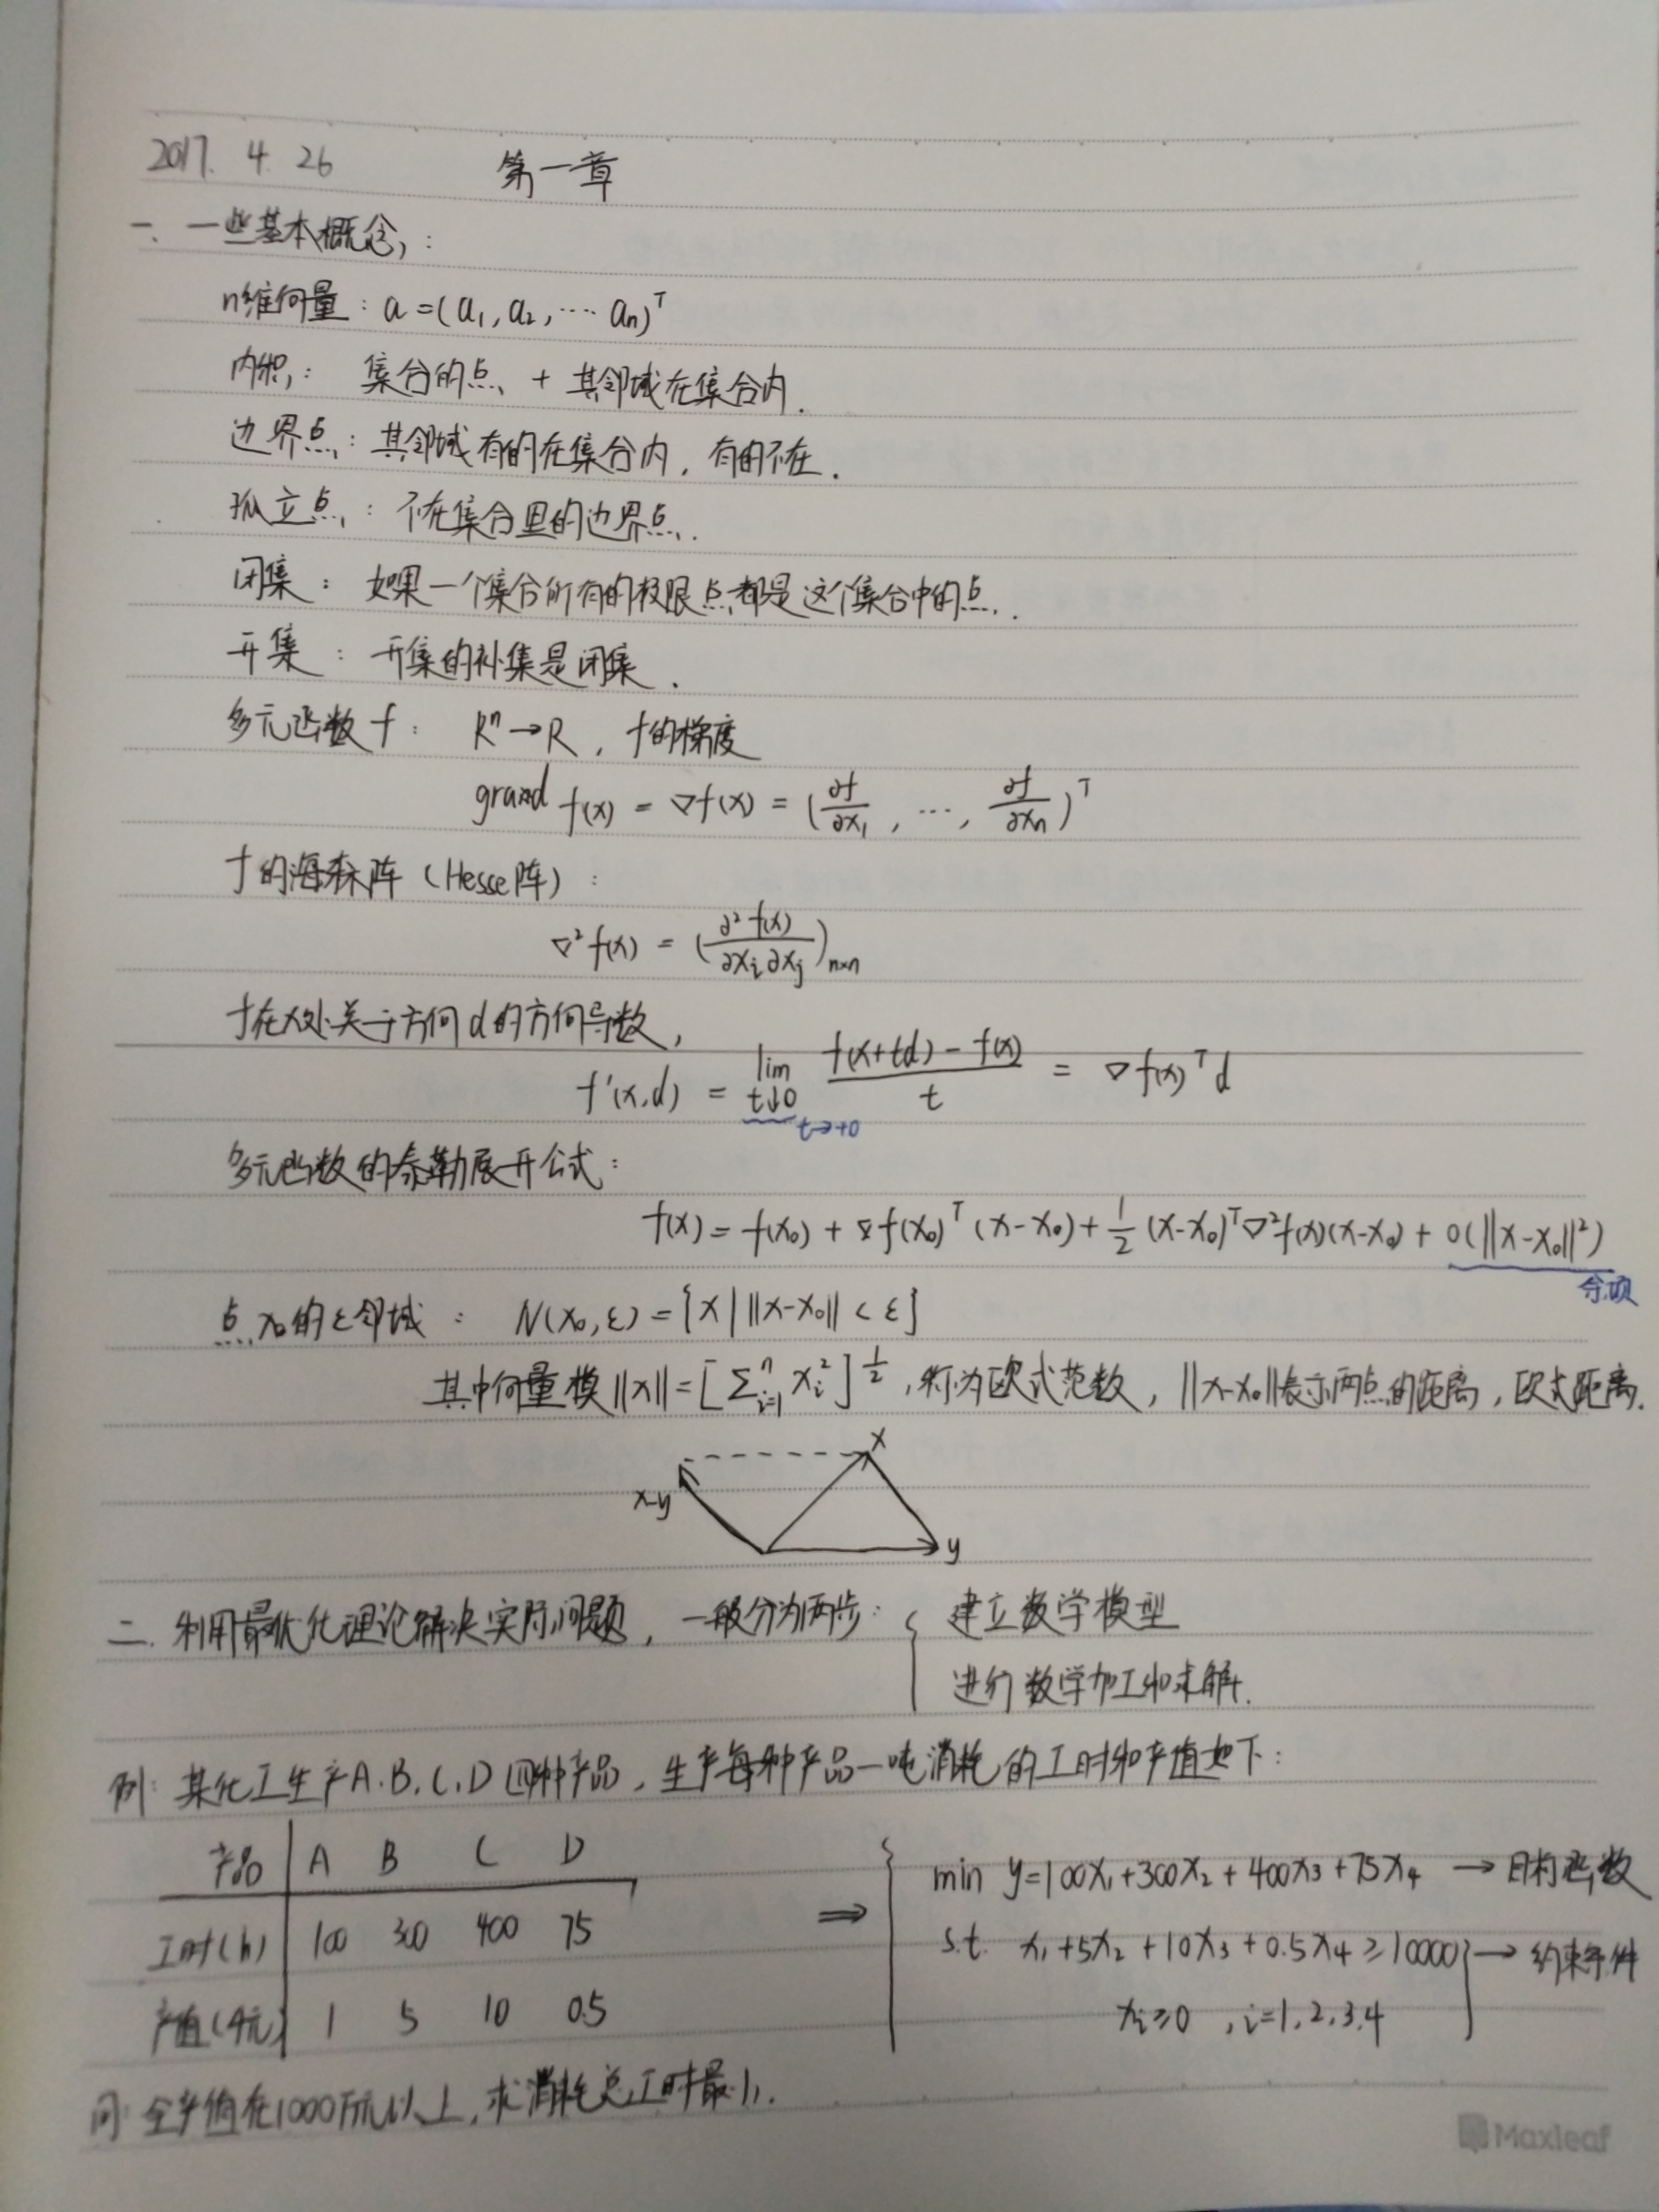 2017. 4. 26 第一章
一. 一些基本概念:
n维向量: a=(a₁, a₂, ⋯ aₙ)ᵀ
内积: 集合的点 + 其邻域在集合内.
边界点: 其邻域有的在集合内, 有的不在.
孤立点: 不在集合里的边界点.
闭集: 如果一个集合所有的极限点都是这个集合中的点.
开集: 开集的补集是闭集.
多元函数 f: Rⁿ→R, f的梯度
grand f(x) = ∇f(x) = (∂f/∂x₁, ⋯, ∂f/∂xₙ)ᵀ
f的海森阵 (Hesse阵):
∇²f(x) = (∂²f(x)/∂xᵢ∂xⱼ)ₙₓₙ
f在x处关于方向d的方向导数,
f'(x,d) = lim t↓0 (f(x+td)-f(x))/t = ∇f(x)ᵀd
t→+0
多元函数的泰勒展开公式:
f(x) = f(x₀) + ∇f(x₀)ᵀ(x-x₀) + 1/2 (x-x₀)ᵀ∇²f(x)(x-x₀) + o(||x-x₀||²)
余项
点x₀的ε邻域: N(x₀,ε) = {x | ||x-x₀|| < ε}
其中向量模||x|| = [∑ⁿᵢ₌₁ xᵢ²]^(1/2), 称为欧式范数, ||x-x₀||表示两点的距离, 欧式距离.
x
x-y
y
二. 利用最优化理论解决实际问题, 一般分为两步: { 建立数学模型
进行数学加工和求解.
例: 某化工生产A.B.C.D四种产品, 生产每种产品一吨消耗的工时和产值如下:
产品 A B C D
工时(h) 100 300 400 75
产值(千元) 1 5 10 0.5
⇒ { min y=100x₁+300x₂+400x₃+75x₄ → 目标函数
s.t. x₁+5x₂+10x₃+0.5x₄≥10000 } → 约束条件
xᵢ≥0, i=1,2,3,4
问: 全产值在1000万元以上, 求消耗总工时最小.
Maxleaf